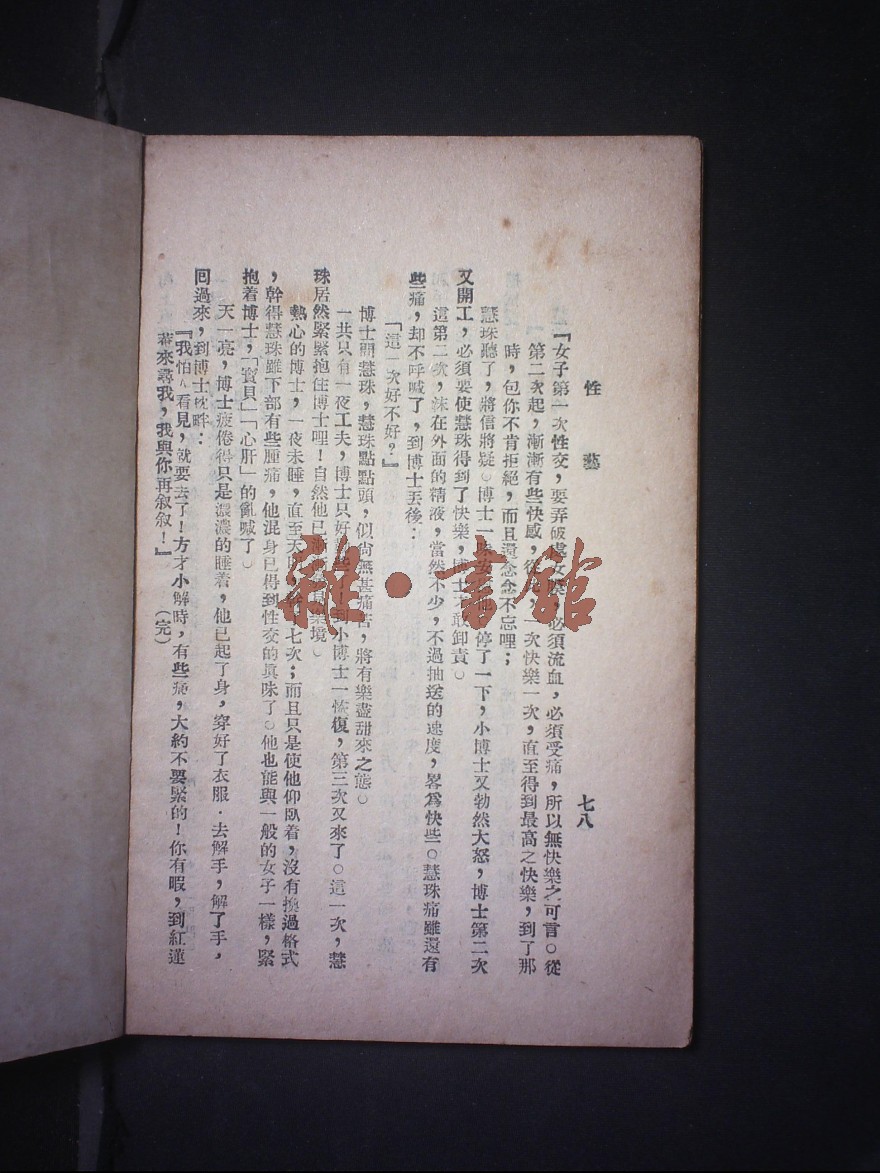 性藝
七八
『女子第一次性交，要弄破處女膜，必須流血，必須受痛，所以無快樂之可言。從
第二次起，漸漸有些快感，從此一次快樂一次，直至得到最高之快樂，到了那
時，包你不肯拒絕，而且還念念不忘哩；
慧珠聽了，將信將疑。博士一停了一下，小博士又勃然大怒，博士第二次
又開工，必須要使慧珠得到了快樂，博士才敢卸責。
這第二次，沫在外面的精液，當然不少，不過抽送的速度，畧爲快些。慧珠痛雖還有
些痛，却不呼喊了，到博士丟後：
「這一次好不好？』
博士問慧珠，慧珠點點頭，似尙無甚痛苦，將有樂盡甜來之態。
一共只有一夜工夫，博士只好些，到小博士一恢復，第三次又來了。這一次，慧
珠居然緊緊抱住博士哩！自然他已漸樂境。
熱心的博士，一夜未睡，直至天七次；而且只是使他仰臥着，沒有換過格式
，幹得慧珠雖下部有些腫痛，他混身已得到性交的眞味了。他也能與一般的女子一樣，緊
抱着博士，「寶貝」「心肝」的亂喊了。
天一亮，博士疲倦得只是濃濃的睡着，他已起了身，穿好了衣服．去解手，解了手，
回過來，到博士枕畔：
『我怕人看見，就要去了！方才小解時，有些痛，大約不要緊的！你有暇，到紅蓮
幕來尋我，我與你再叙叙！』
（完）
雜·書館